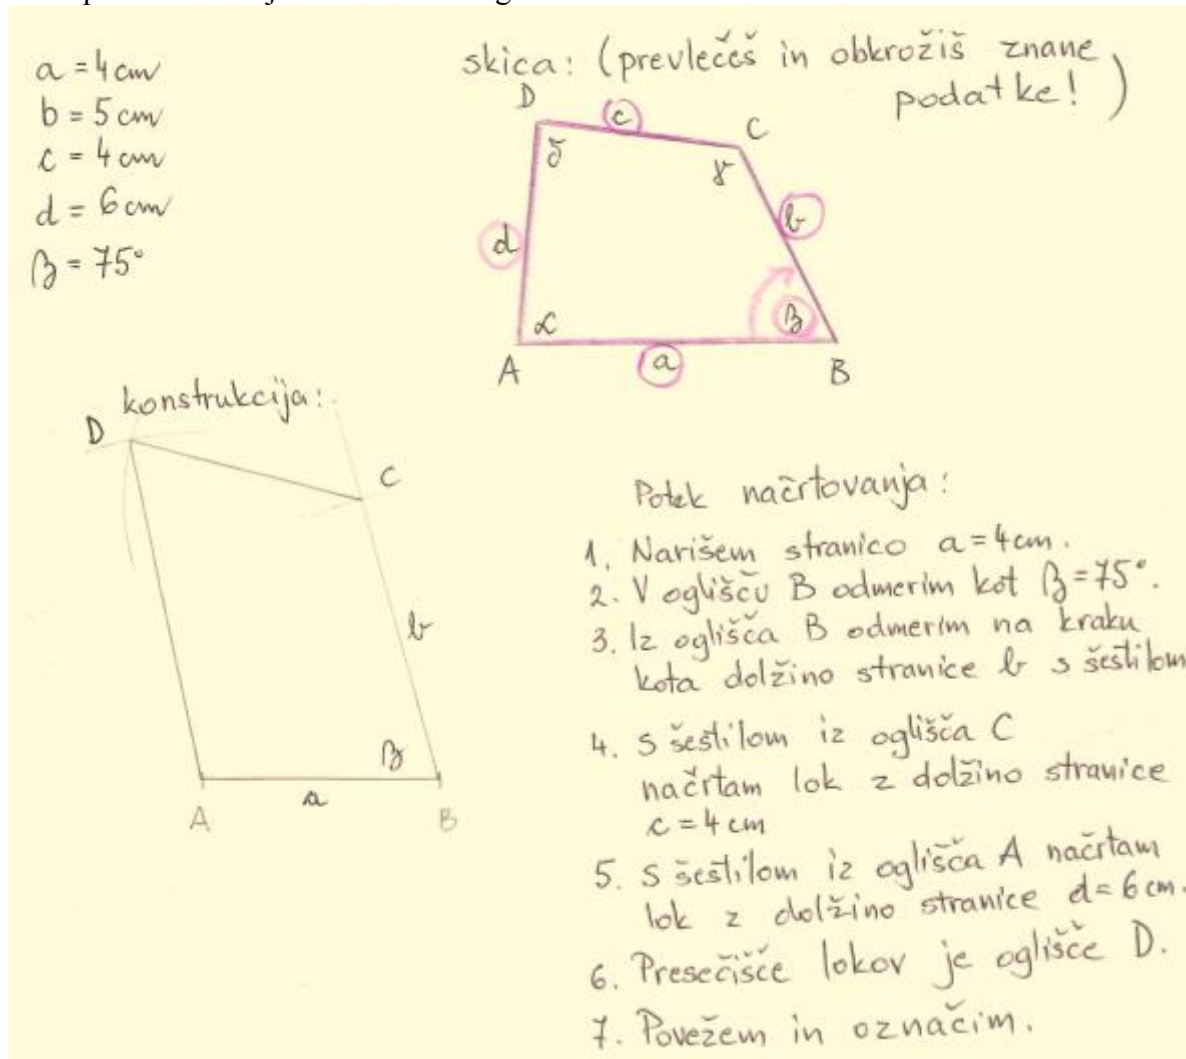 a = 4 cm
b = 5 cm
c = 4 cm
d = 6 cm
β = 75°
skica: (prevlečeš in obkrožiš znane
podatke!)
D c C
δ γ
d b
α β
A a B
konstrukcija:
D
C
b
β
a
A B
Potek načrtovanja:
1. Narišem stranico a = 4 cm.
2. V oglišču B odmerim kot β = 75°.
3. Iz oglišča B odmerim na kraku
kota dolžino stranice b s šestilom
4. S šestilom iz oglišča C
načrtam lok z dolžino stranice
c = 4 cm
5. S šestilom iz oglišča A načrtam
lok z dolžino stranice d = 6 cm.
6. Presečišče lokov je oglišče D.
7. Povežem in označim.